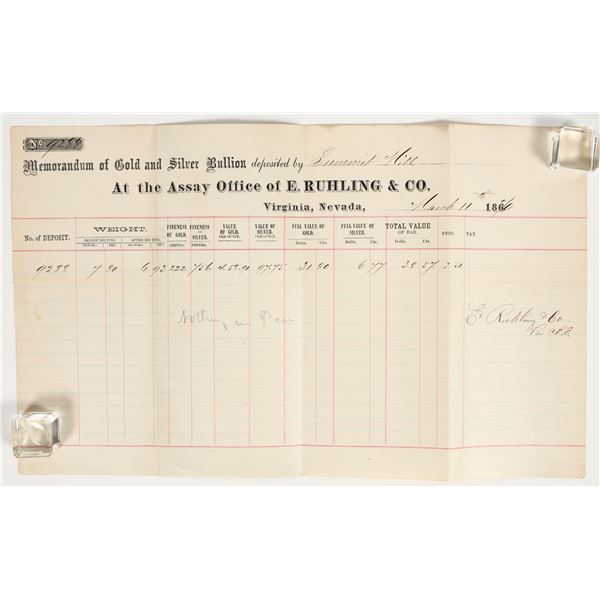 No 9288
Memorandum of Gold and Silver Bullion deposited by Summit Mill
At the Assay Office of E. RUHLING & CO.
Virginia, Nevada, March 11th 1866
No. of DEPOSIT. WEIGHT. FINENESS OF GOLD. FINENESS OF SILVER. VALUE OF GOLD. PER OUNCE. VALUE OF SILVER. PER OUNCE. FULL VALUE OF GOLD. FULL VALUE OF SILVER. TOTAL VALUE OF BAR. FEES. TAX.
BEFORE MELTING. AFTER MELTING.
OUNCES. DEC. OUNCES. DEC. 1000THS. 1000THS. Dolls. Cts. Dolls. Cts. Dolls. Cts.
9288 7 80 6 93 222 756 4.58.91 97.75 31 80 6 77 38 57 2 50
Nothing in Pan
E Ruhling & Co